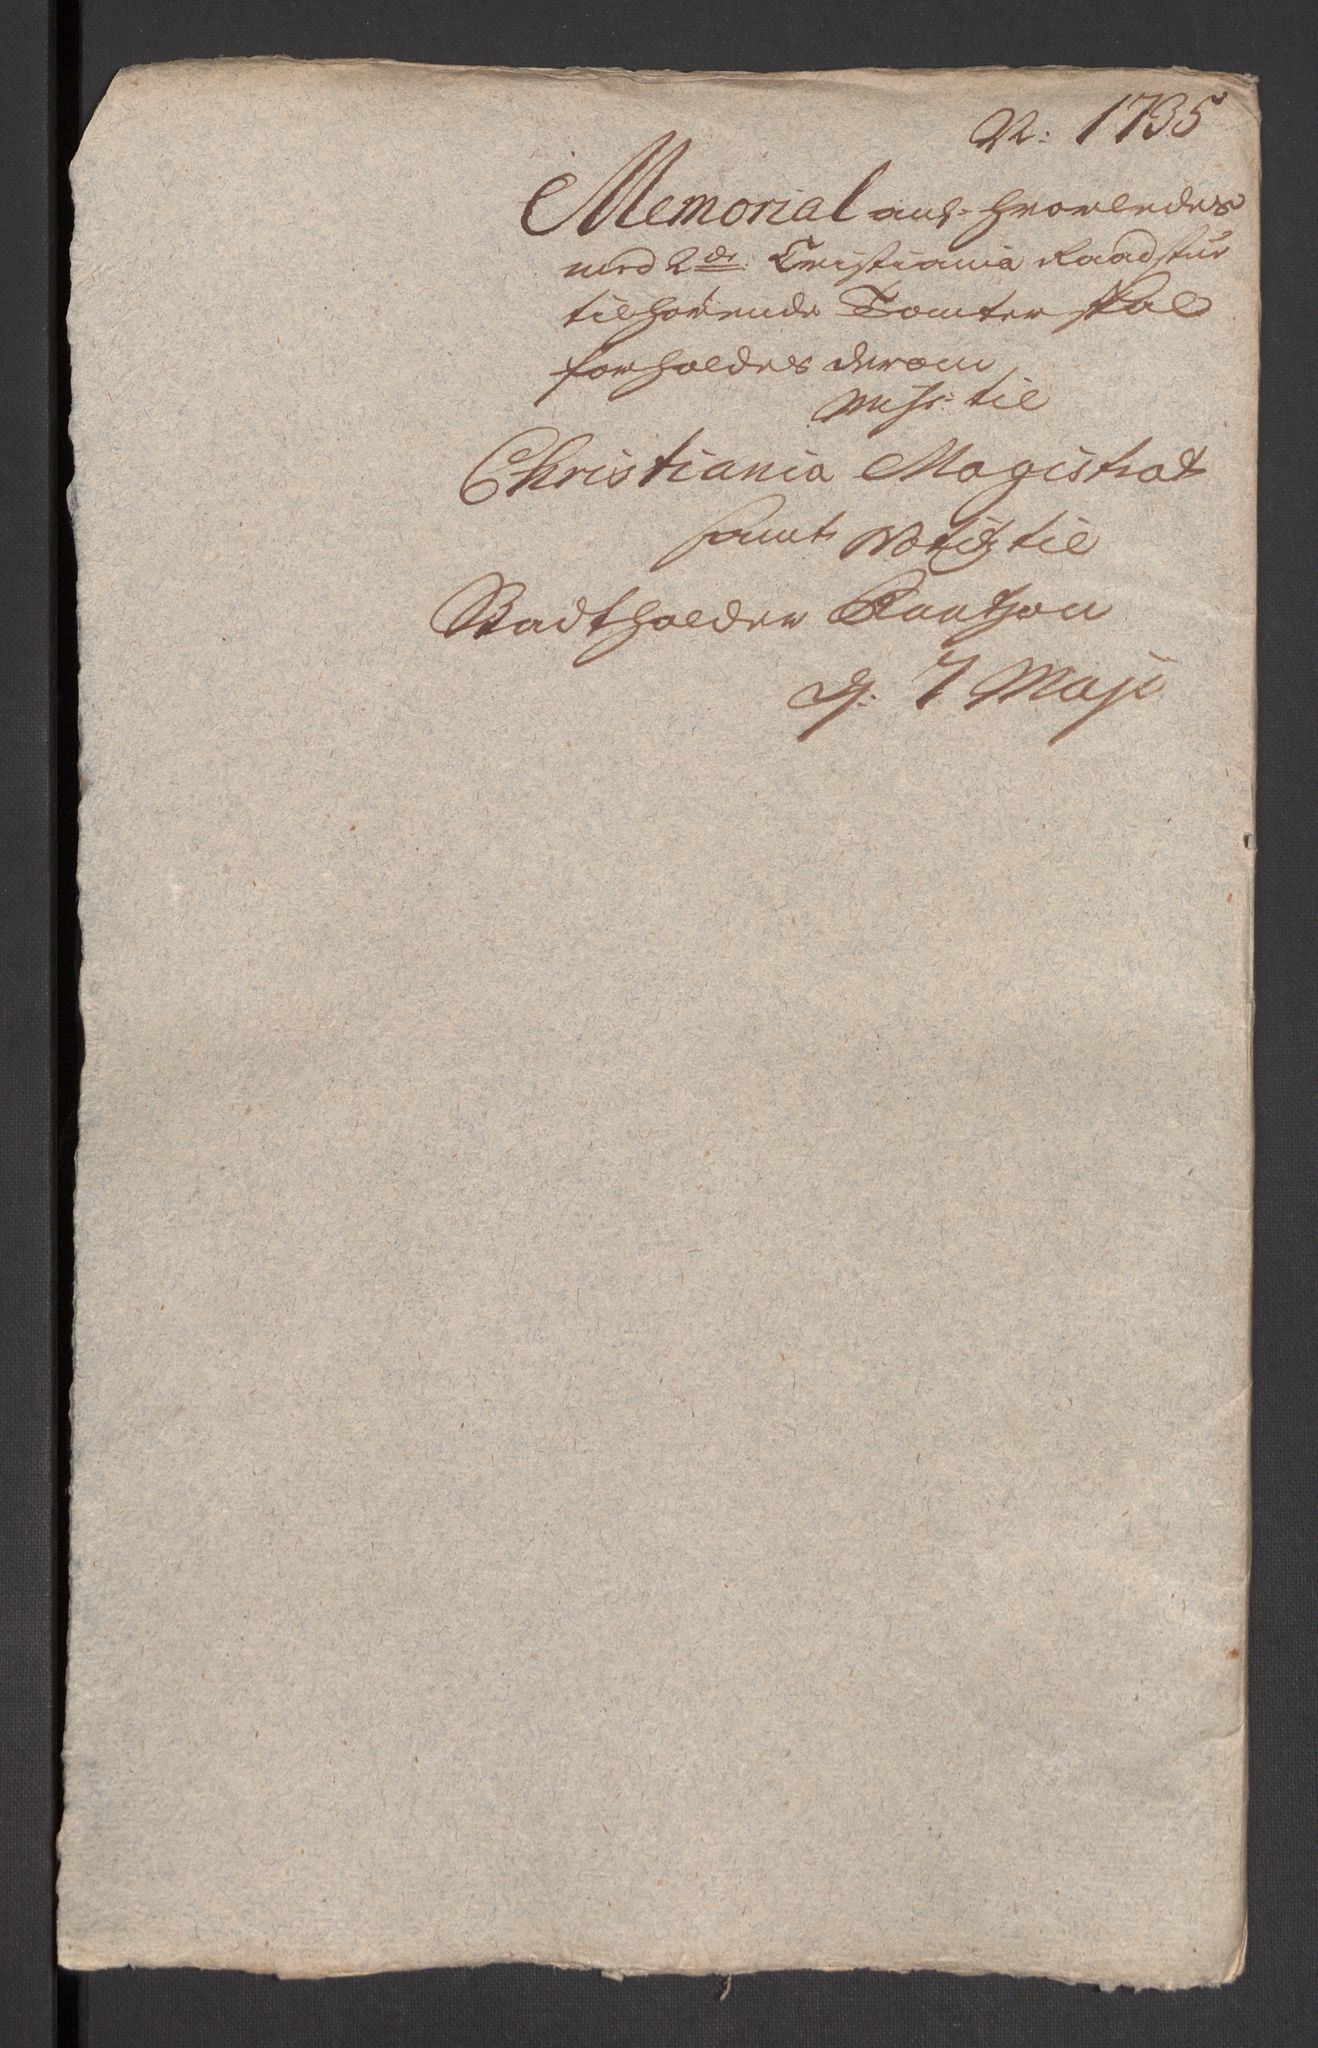 A: 1735
Memorial anl: hvorledes
med 2de Cristiania Raadstue
tilhørende Tomter skal
forholdes derom
Miss: til
Christiania Magistrat
samt Notitz til
Stadtholder Rantzou
d: 7 Maji